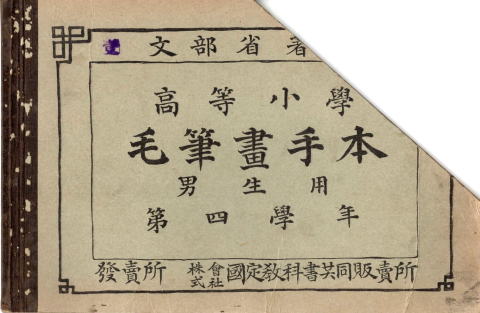 文部省著
高等小學
毛筆畫手本
男生用
第四學年
發賣所 株式會社國定教科書共同販賣所